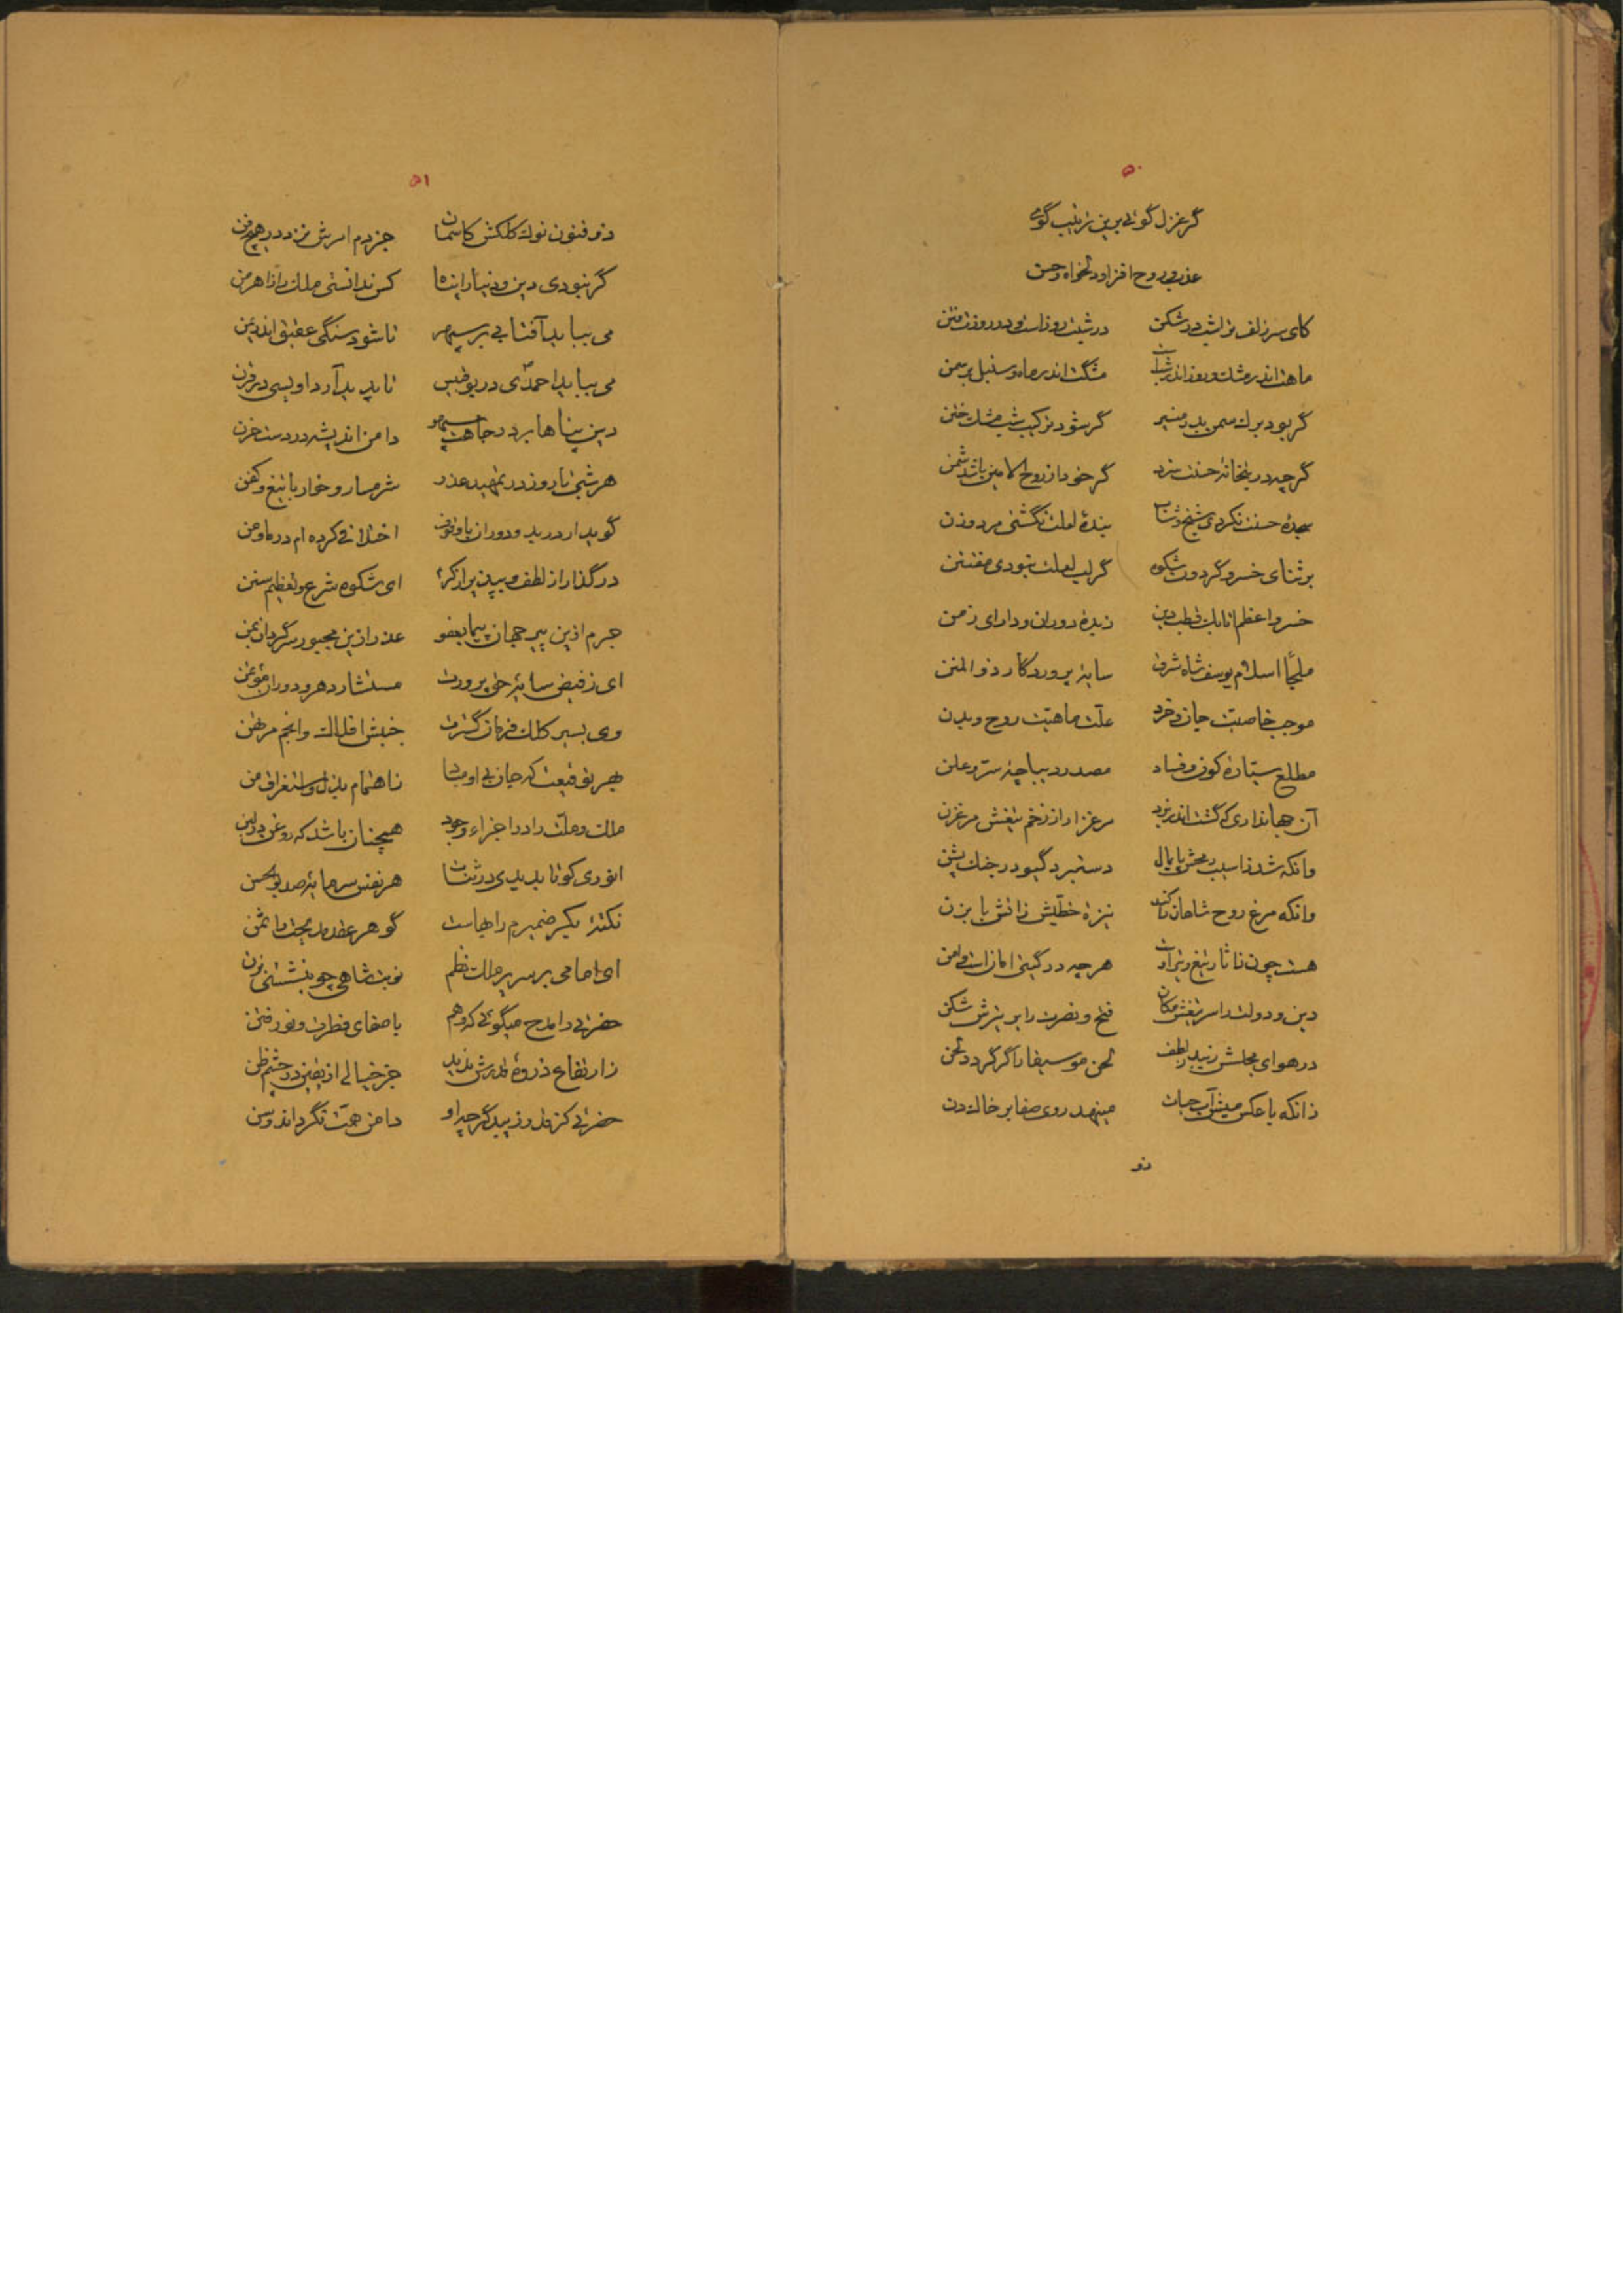 ۵۰
گر غزل گوئی برین ترتیب گوی
عذب و روح افزا و دلخواه و حسن
کای سر زلف تراشب در شکن در شبت روز است و در روزت فتن
ماهت اندر مشک و روز اندر شب است مشکت اندر ماه و سنبل بر سمن
گر بود برک سمن بدر منیر گر شود ترکیب شب مشک ختن
گرچه در بتخانه حسنت سزد گر خود از روح الامین باشد شمن
سجدهٔ حسنت نکردی شیخ و شاب بندهٔ لعلت نگشتی مرد و زن
بر ثنای خسرو گردون شکوه گر لب لعلت نبودی مفتتن
خسرو اعظم اتابک قطب دین زبدهٔ دوران و دارای زمن
ملجأ اسلام یوسف شاه شرف سایهٔ پروردگار ذو المنن
موجب خاصیت جان و خرد علت ماهیت روح و بدن
مطلع سیارهٔ کون و فساد مصدر دیباچهٔ سر و علن
آن جهانداری که گشت اندر نبرد مرغزار از زخم تیغش مرغزن
وانکه شد ز آسیب رمحش پایمال دستبرد گیو در جنک پشن
وانکه مرغ روح شاهان را کند نیزهٔ خطیش ز آتش بابزن
هست چون ناثار تیغ و تیر او هرچه در گیتی امان است و امن
دین و دولت را سر تیغش مکان فتح و نصرت را پر تیرش شکن
در هوای مجلس زیبد ز لطف لحن موسیقار اگر گردد لحن
زانکه با عکس میش آب حیات مینهد روی صفا بر خاک دن
ذو
۵۱
ذو فنون نوک کلکش کاسمان جز بدم امرش نزد در هیچ فن
گر نبودی دین و دنیا را پناه کس ندانستی ملک را ز اهرمن
می بباید آفتابی بر سپهر تا شود سنگی عقیق اندر یمن
می بباید احمدی در بوقبیس تا پدید آرد اویسی در قرن
دین پناها بر در جاهت سپهر دامن اندیشه در دست حزن
هر شبی تا روز در تمهید عذر شرمسار و خوار با تیغ و کفن
گوید ار در بد و دوران با وقوف اختلافی کرده ام در ما و من
درگذار از لطف و بپذیر از کرم ای شکوه شرع و تعظیم سنن
جرم ازین پیر جهان پیما بعفو عذر ازین مجبور سرگردان بمن
ای ز فیض سایهٔ حق پرورت مستشار دهر و دوران مؤتمن
وی بسیر کلک فرمان گسترت جنبش افلاک و انجم مرتهن
بهر توقیعت که جان بی او مباد تا هتمام بذل و استغراق من
ملک و ملت را در اجزاء وجود همچنان باشد که روغن در لبن
انوری کو تا بدیدی در ثنات هر نفس سرمایهٔ صد بوالحسن
نکتهٔ بکر ضمیرم را بهاست گوهر عقد مدیحت را ثمن
ای امامی بر سریر ملک نظم نوبت شاهی چو بنشستی بزن
حضرتی را مدح میگوئی که وهم با صفای فطرت و نور فتن
ز ارتفاع ذروهٔ قدرش ندید جز خیالی از یقین در چشم ظن
حضرتی کز قدر زیبد گر چه او دامن همت نگرداند وسن